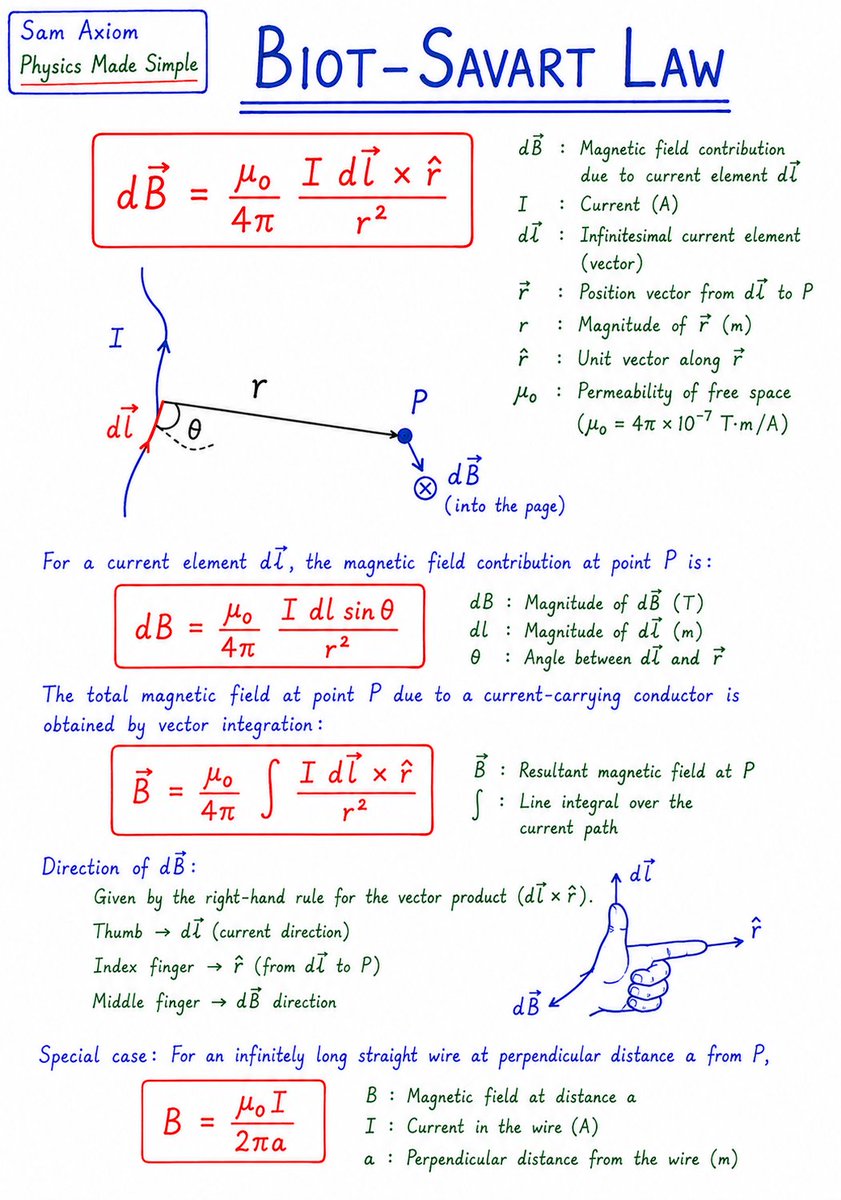 Sam Axiom
Physics Made Simple
BIOT-SAVART LAW
dB⃗ = μ₀/4π I dl⃗ × r̂/r²
dB⃗ : Magnetic field contribution
due to current element dl⃗
I : Current (A)
dl⃗ : Infinitesimal current element
(vector)
r⃗ : Position vector from dl⃗ to P
r : Magnitude of r⃗ (m)
r̂ : Unit vector along r⃗
μ₀ : Permeability of free space
(μ₀ = 4π × 10⁻⁷ T·m/A)
I
r
P
dl⃗
θ
dB⃗
(into the page)
For a current element dl⃗, the magnetic field contribution at point P is:
dB = μ₀/4π I dl sin θ/r²
dB : Magnitude of dB⃗ (T)
dl : Magnitude of dl⃗ (m)
θ : Angle between dl⃗ and r⃗
The total magnetic field at point P due to a current-carrying conductor is
obtained by vector integration:
B⃗ = μ₀/4π ∫ I dl⃗ × r̂/r²
B⃗ : Resultant magnetic field at P
∫ : Line integral over the
current path
Direction of dB⃗:
Given by the right-hand rule for the vector product (dl⃗ × r̂).
Thumb → dl⃗ (current direction)
Index finger → r̂ (from dl⃗ to P)
Middle finger → dB⃗ direction
dl⃗
r̂
dB⃗
Special case: For an infinitely long straight wire at perpendicular distance a from P,
B = μ₀I/2πa
B : Magnetic field at distance a
I : Current in the wire (A)
a : Perpendicular distance from the wire (m)